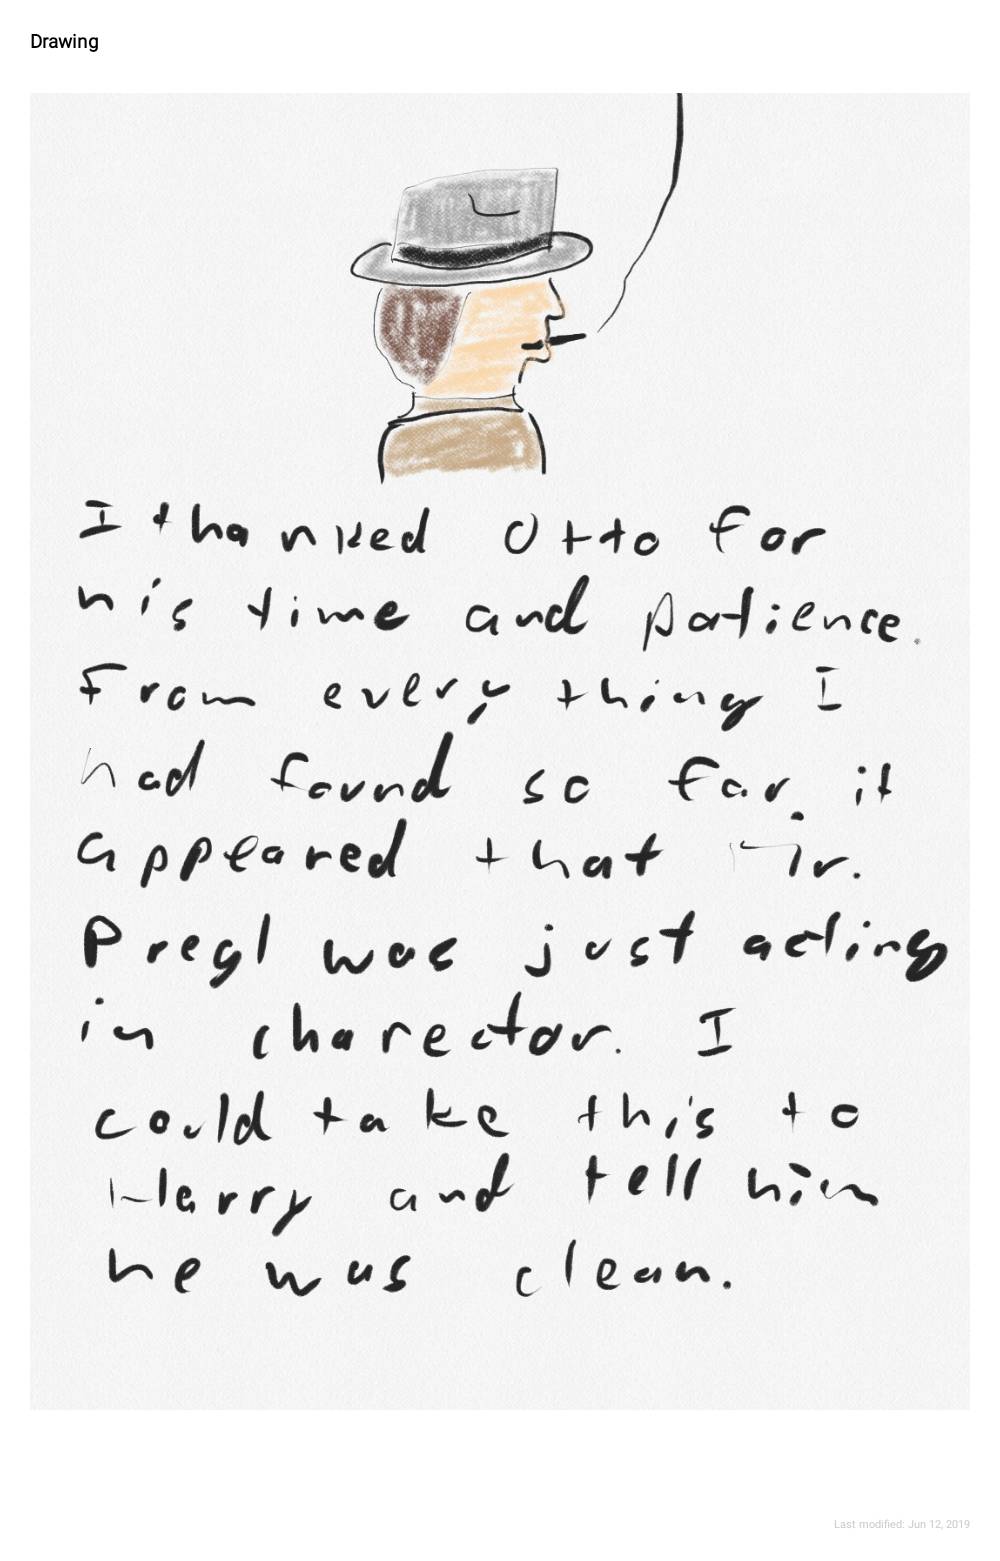 Drawing
I thanked Otto for
his time and patience.
From every thing I
had found so far, it
appeared that Mr.
Pregl was just acting
in charector. I
could take this to
Harry and tell him
he was clean.
Last modified: Jun 12, 2019